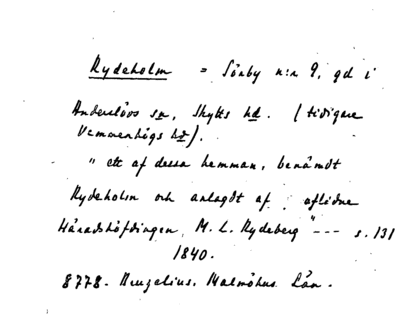 Rydeholm = Sörby n:r 9, gd i
Anderslövs sn, Skytts hd. (tidigare
Vemmenhögs hd).
" ett af dessa hemman, benämdt
Rydeholm och anlagdt af aflidne
Häradshöfdingen, M. L. Rydeberg " --- s. 131
1840.
8778. Bruzelius, Malmöhus Län.